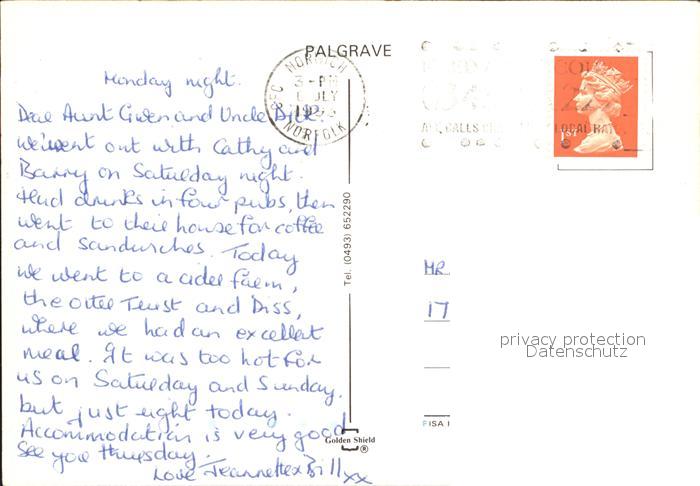 PALGRAVE
NORWICH
3-PM
JLY
NORFOLK
1st
Monday night.
Dear Aunt Gwen and Uncle Dick
we went out with Cathy and
Barry on Saturday night.
Had drinks in four pubs, then
went to their house for coffee
and sandwiches. Today
we went to a cider farm,
the otter Trust and Diss,
where we had an excellent
meal. It was too hot for
us on Saturday and Sunday.
but just right today.
Accommodation is very good
See you thursday.
Love Jeannette x Bill xx
Tel. (0493) 652290
Golden Shield
®
MR
17
privacy protection
Datenschutz